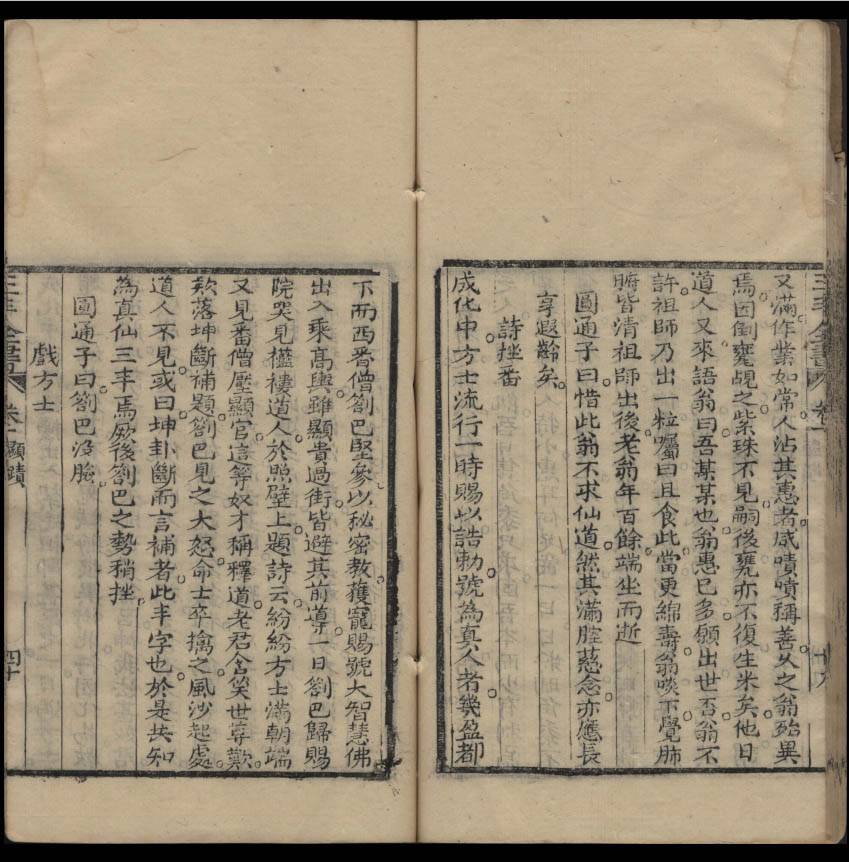 三丰全書 卷一
又滿作業如常人沾其惠者咸嘖嘖稱善久之翁殆異
焉因倒甕覘之紫珠不見嗣後甕亦不復生米矣他日
道人又來語翁曰吾某某也翁惠已多願出世否翁不
許祖師乃出一粒囑曰且食此當更綿壽翁啖下覺肺
腑皆清祖師出後老翁年百餘端坐而逝
圓通子曰惜此翁不求仙道然其滿腔慈念亦應長
享遐齡矣
詩挫番
成化中方士流行一時賜以誥勅號為真人者幾盈都
下而西番僧劄巴堅參以秘密教獲寵賜號大智慧佛
出入乘高輿雖顯貴過街皆避其前導一日劄巴歸賜
院哭見襤褸道人於照壁上題詩云紛紛方士滿朝端
又見番僧壓顯官這等奴才稱釋道老君含笑世尊歎
欸落坤斷補題劄巴見之大怒命士卒擒之風沙起處
道人不見或曰坤卦斷而言補者此丰字也於是共知
為真仙三丰焉厥後劄巴之勢稍挫
圓通子曰劄巴沒臉
戲方士
三丰全書 卷一 顯蹟 四十